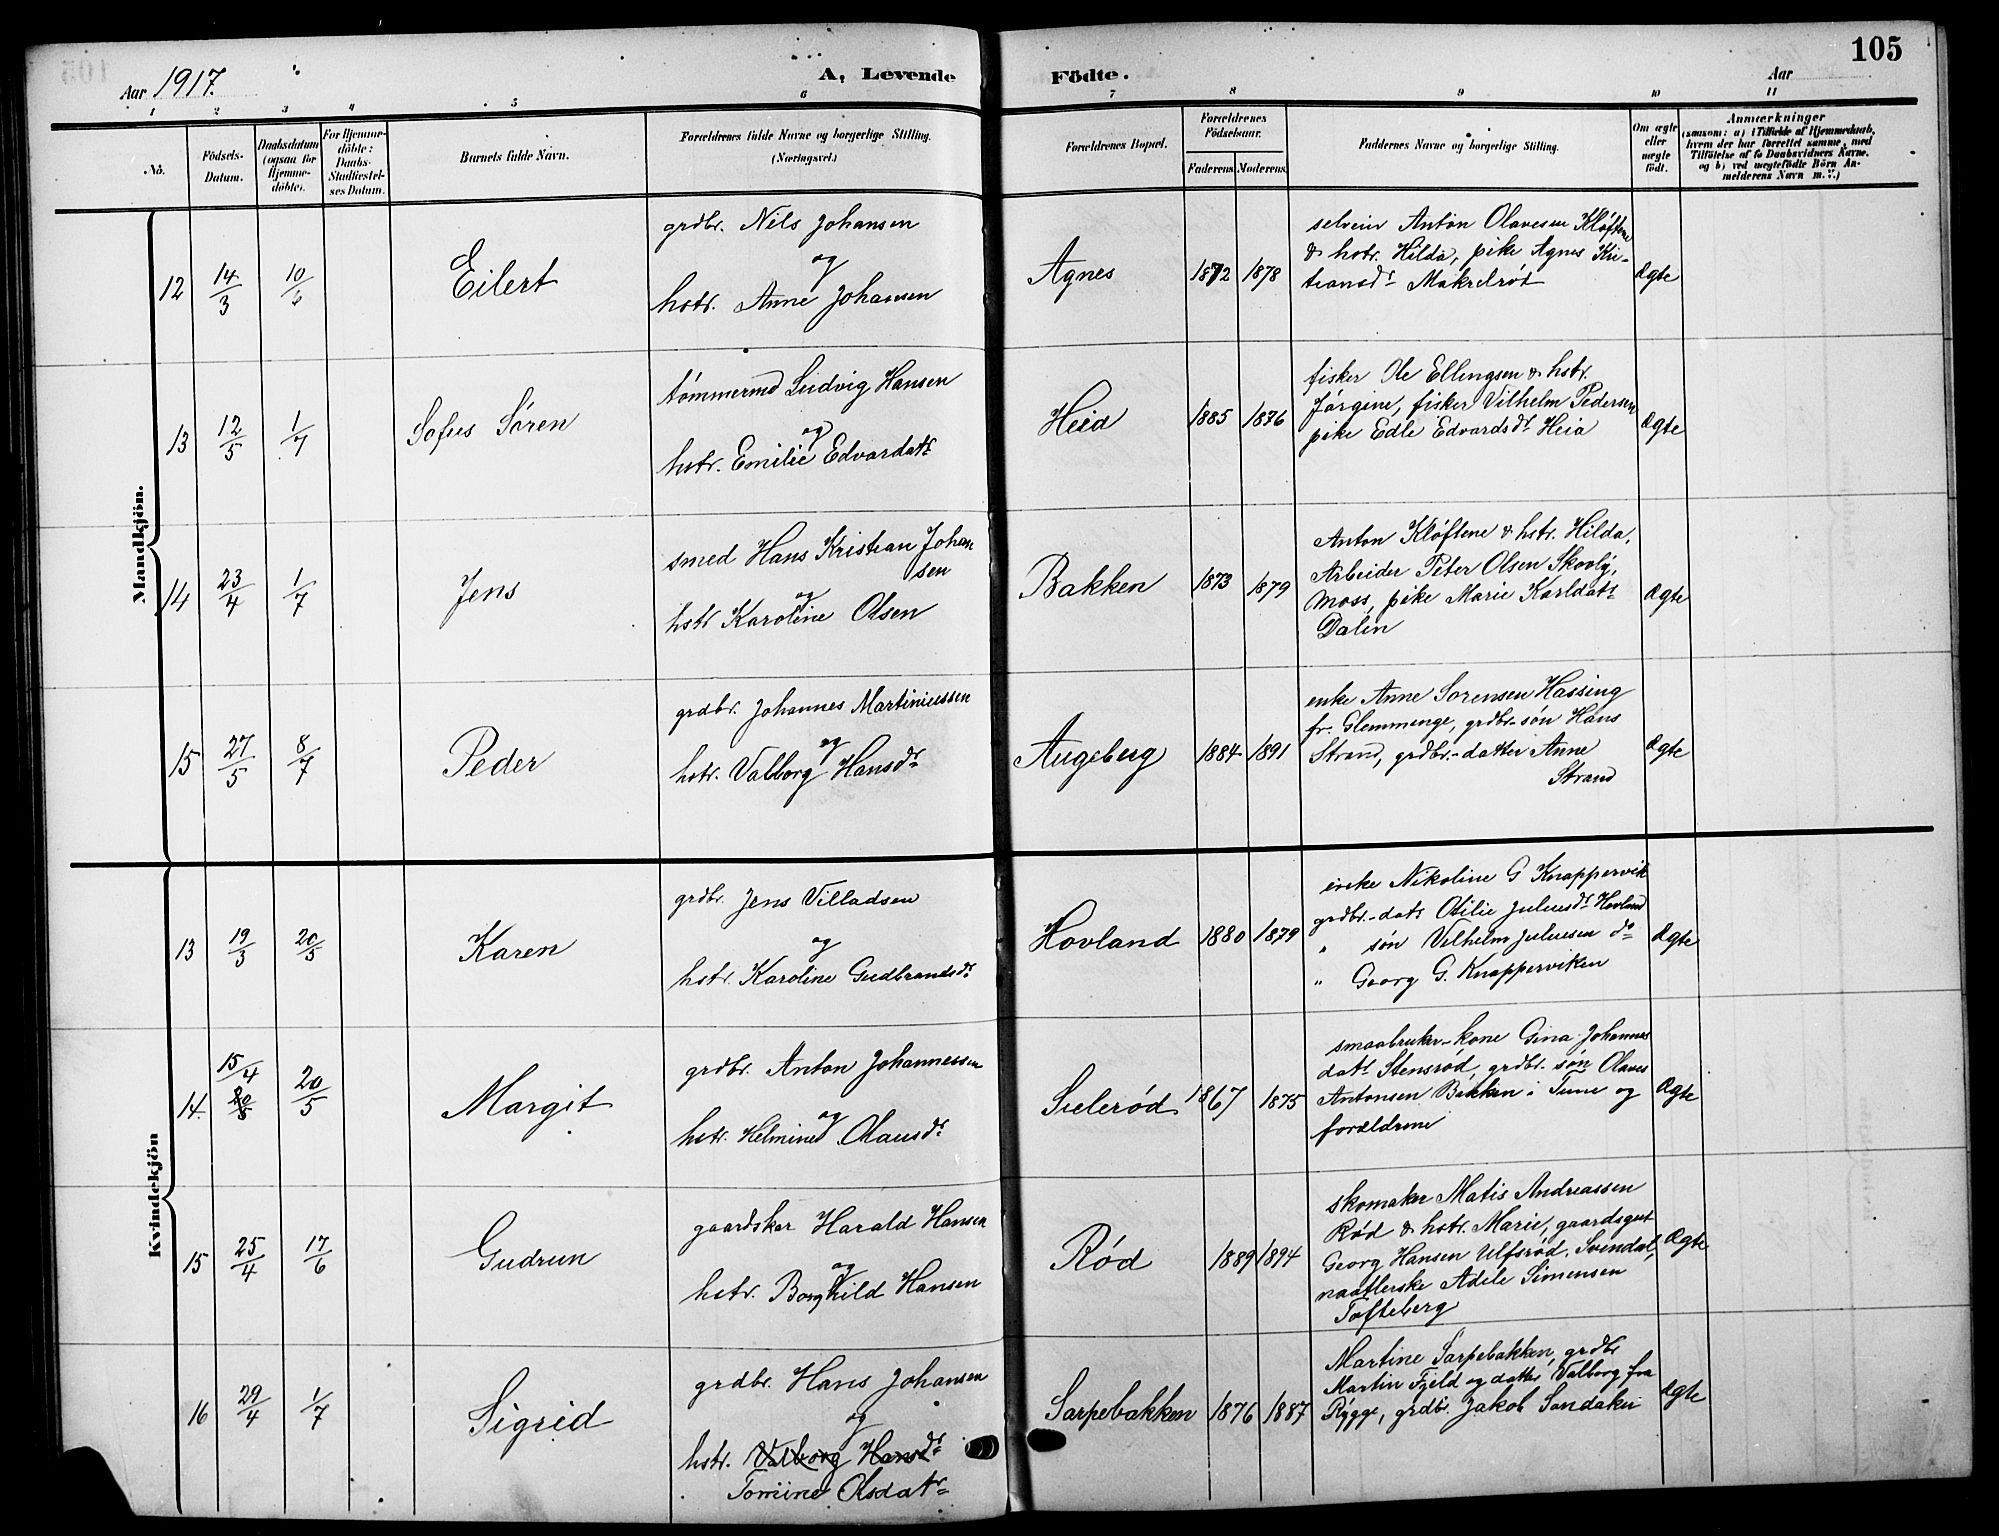 105
Aar 1917.
A. Levende Födte.
Aar
1 2 3 4 5 6 7 8 9 10 11
No.
Födsels-Datum.
Daabsdatum (ogsaa for Hjemme-döbte).
For Hjemme-döbte: Daabs-Stadfæstel-ses Datum.
Barnets fulde Navn.
Forældrenes fulde Navne og borgerlige Stilling.
(Næringsvei.)
Forældrenes Bopæl.
Forældrenes Födselsaar.
Faderens Moderens
Faddernes Navne og borgerlige Stilling.
Om ægte eller uægte födt.
Anmærkninger
(saasom: a) i Tilfælde af Hjemmedaab,
hvem der har forrettet samme, med
Tilföielse af to Daabsvidners Navne.
og b) ved uægtefödte Börn An-
melderens Navn m. v.)
Mandkjön.
12 14/3 10/6 Eilert
grdbr. Nils Johansen
og
hstr. Anne Johansen
Agnes 1872 1878
selveier Anton Olavesen Kløftene
& hstr. Hilda, pike Agnes Kri-
tiansdr Makrelrøt
Ægte
13 12/5 1/7 Sofus Sören
tömmermd Ludvig Hansen
og
hstr. Emilie Edvardatr
Heia 1885 1876
fisker Ole Ellingsen & hstr.
Jörgine, fisker Vilhelm Pedersen
pike Edle Edvardsdr Heia
Ægte
14 23/4 1/7 Jens
smed Hans Kristian Johan
sen
og
hstr Karoline Olsen
Bakken 1873 1879
Anton Kløftene & hstr. Hilda,
Arbeider Peter Olsen Skovly,
Moss, pike Marie Karldatr
Dalen
Ægte
15 27/5 8/7 Peder
grdbr. Johannes Martiniussen
og
hstr. Valborg Hansdr
Augeberg 1884 1891
enke Anne Sorensen Hassing
fr. Glemmenge, grdbr-søn Hans
Strand, grdbr.-datter Anne
Strand
Ægte
Kvindekjön
13 19/3 20/5 Karen
grdbr. Jens Villadsen
og
hstr. Karoline Gudbrandsdr
Hovland 1880 1879
enke Nikoline G Knappervik
grdbr.-datr Otilie Juliusdr Hovland
" søn Vilhelm Juliusen do
" Georg G. Knapperviken
Ægte
14 15/4 20/5 20/5 Margit
grdbr. Anton Johannessen
og
hstr. Helmine Olausdr
Sælerød 1867 1875
smaabruker-kone Gina Johannes
datr Stensrød, grdbr. søn Olaves
Antonsen Bakken i Tune og
forældrene
Ægte
15 25/4 17/6 Gudrun
gaardskar Harald Hansen
og
hstr. Borghild Hansen
Rød 1889 1894
skomaker Matis Andreassen
Rød & hstr. Marie, gaardsgut
Georg Hansen Ulfsrød, Svendal,
naatlerske Adele Simensen
Tofteberg
Ægte
16 29/4 1/7 Sigrid
grdbr. Hans Johansen
og
hstr. Valborg Hansdr
Tomine Olsdatr
Sarpebakken 1876 1887
Martine Sarpebakken, grdbr
Martin Fjeld og datter Valborg fra
Rygge, grdbr. Jakob Sandaker
Ægte